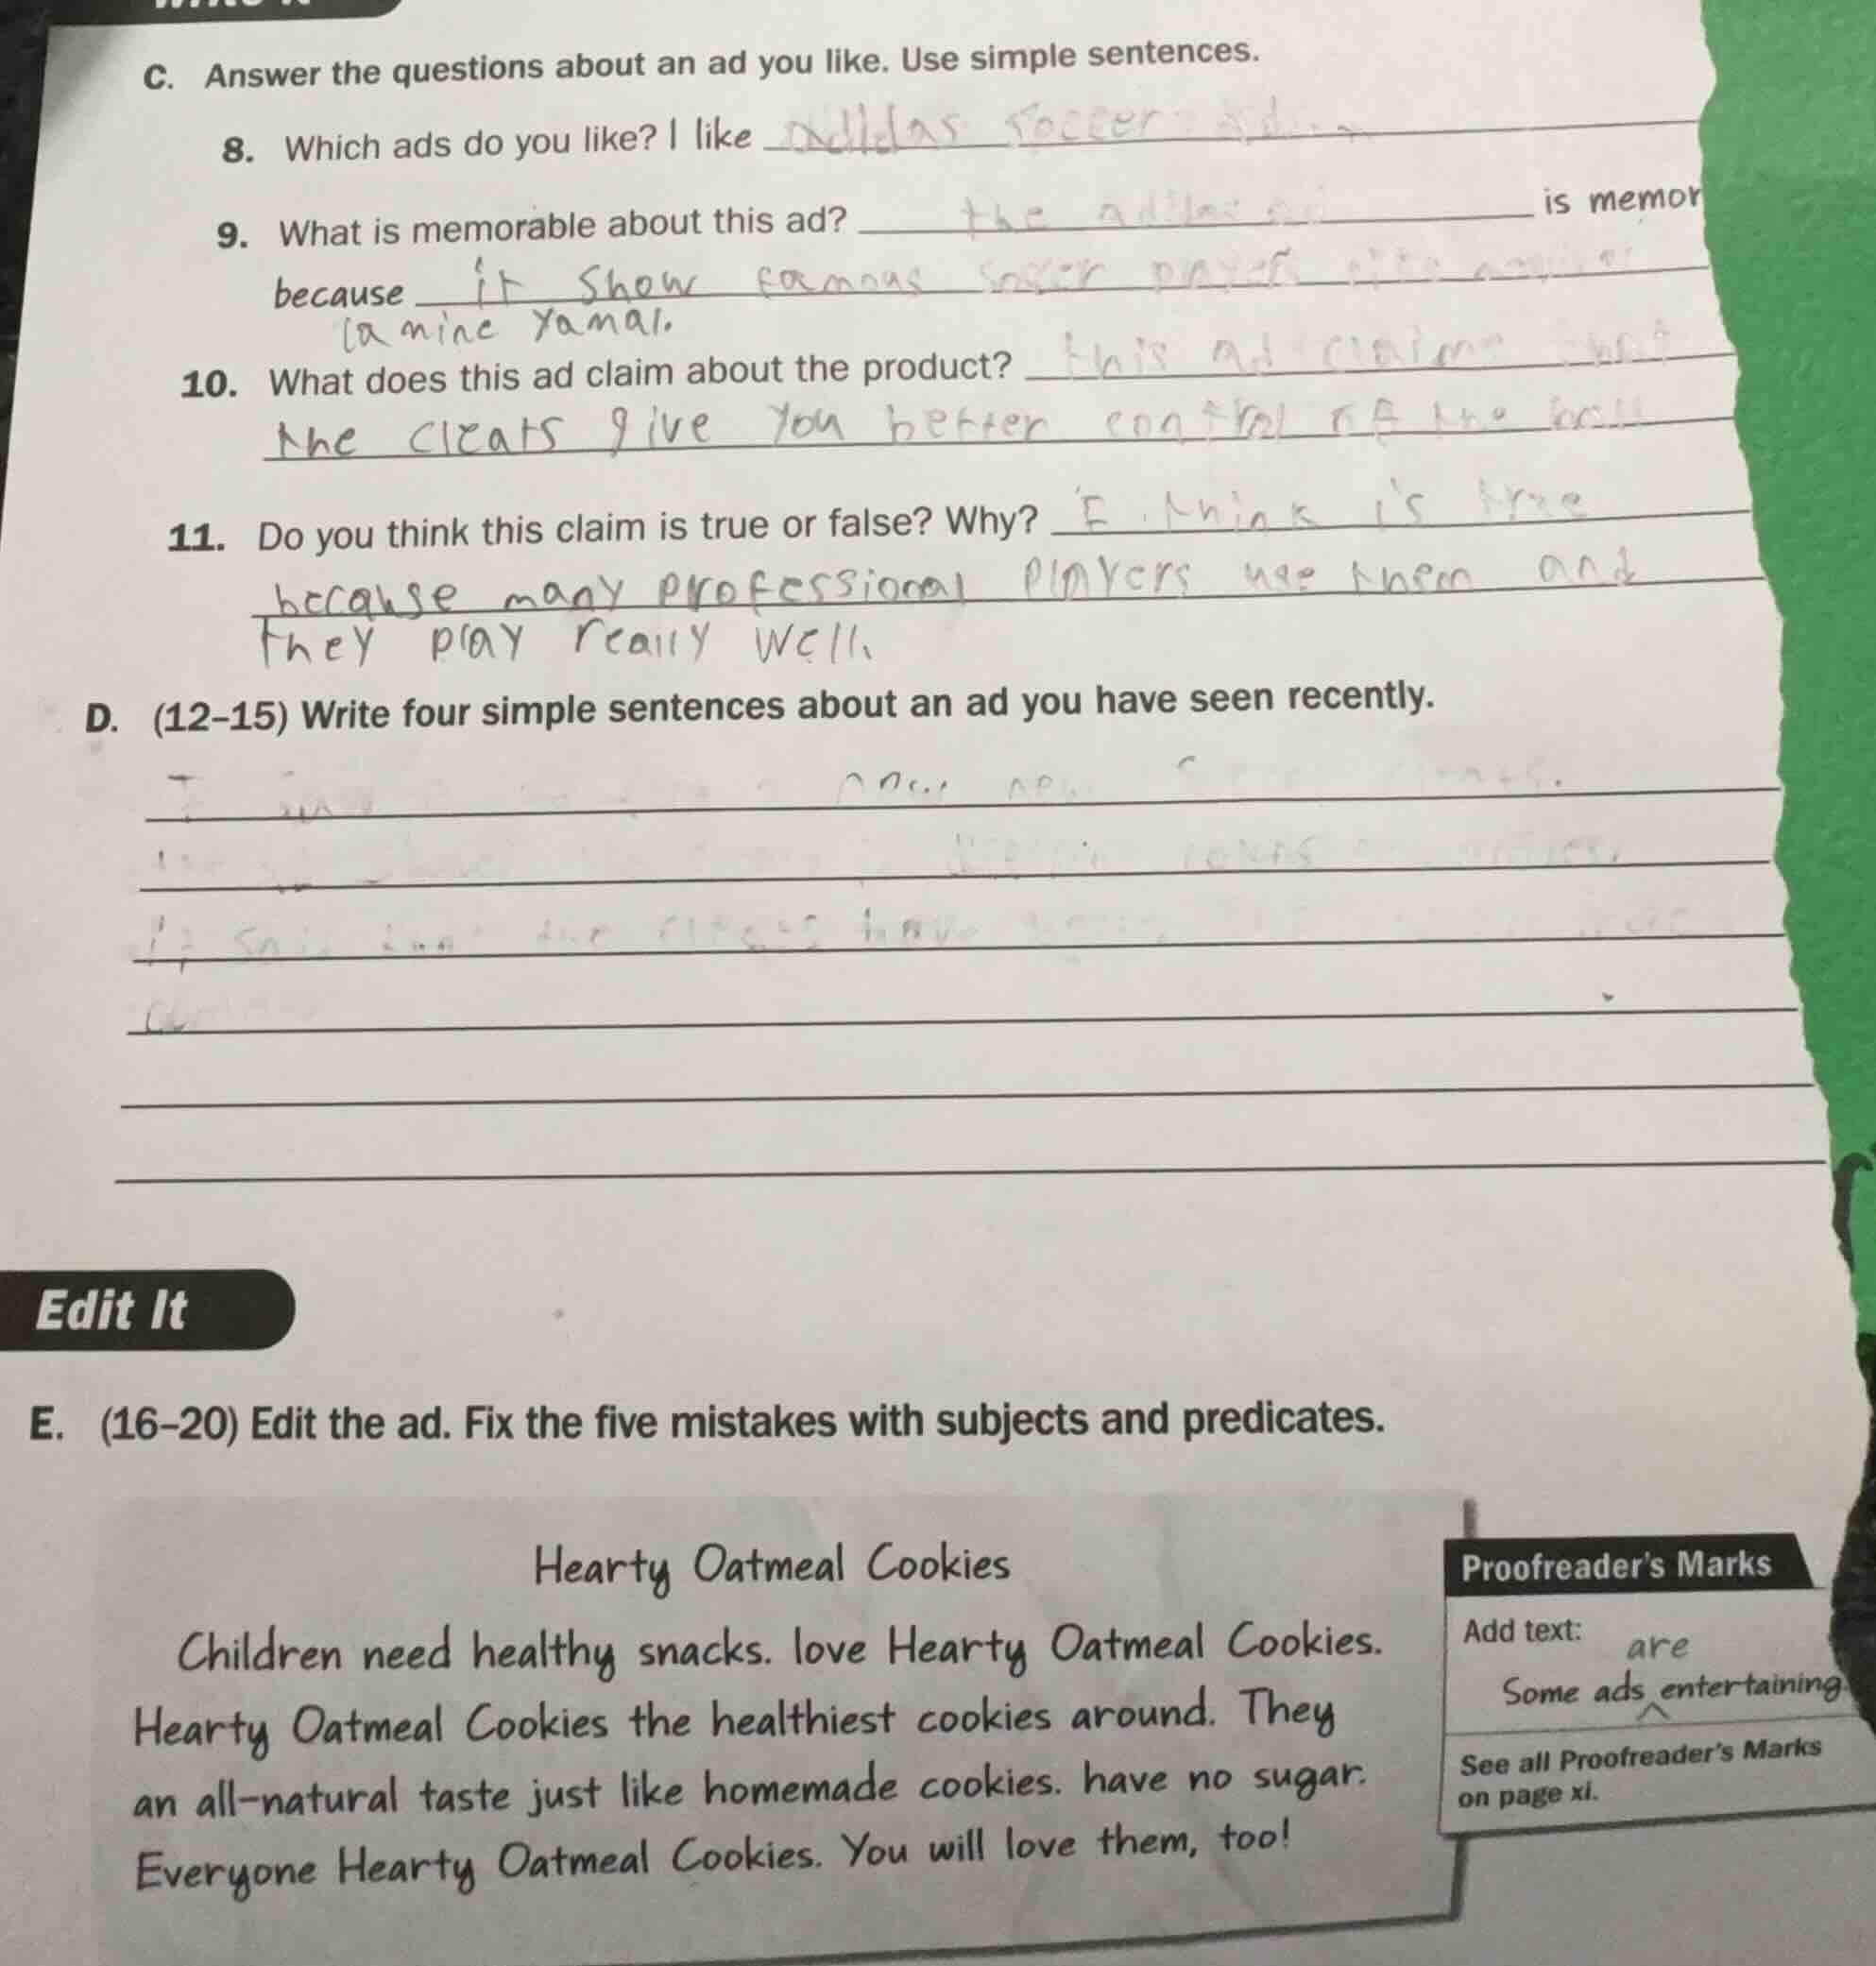 C. Answer the questions about an ad you like. Use simple sentences.
8. Which ads do you like? I like adidas soccer ad
9. What is memorable about this ad? the adidas ad is memor
because it show famous soccer player
lamine yamal.
10. What does this ad claim about the product? this ad claim that
the cleats give you better control of the ball
11. Do you think this claim is true or false? Why? I think is true
because many professional players use them and
they play really well.
D. (12–15) Write four simple sentences about an ad you have seen recently.
I
it said that the cleats have
Edit It
E. (16–20) Edit the ad. Fix the five mistakes with subjects and predicates.
Hearty Oatmeal Cookies
Children need healthy snacks. love Hearty Oatmeal Cookies.
Hearty Oatmeal Cookies the healthiest cookies around. They
an all-natural taste just like homemade cookies. have no sugar.
Everyone Hearty Oatmeal Cookies. You will love them, too!
Proofreader's Marks
Add text:
are
Some ads entertaining.
See all Proofreader's Marks
on page xi.